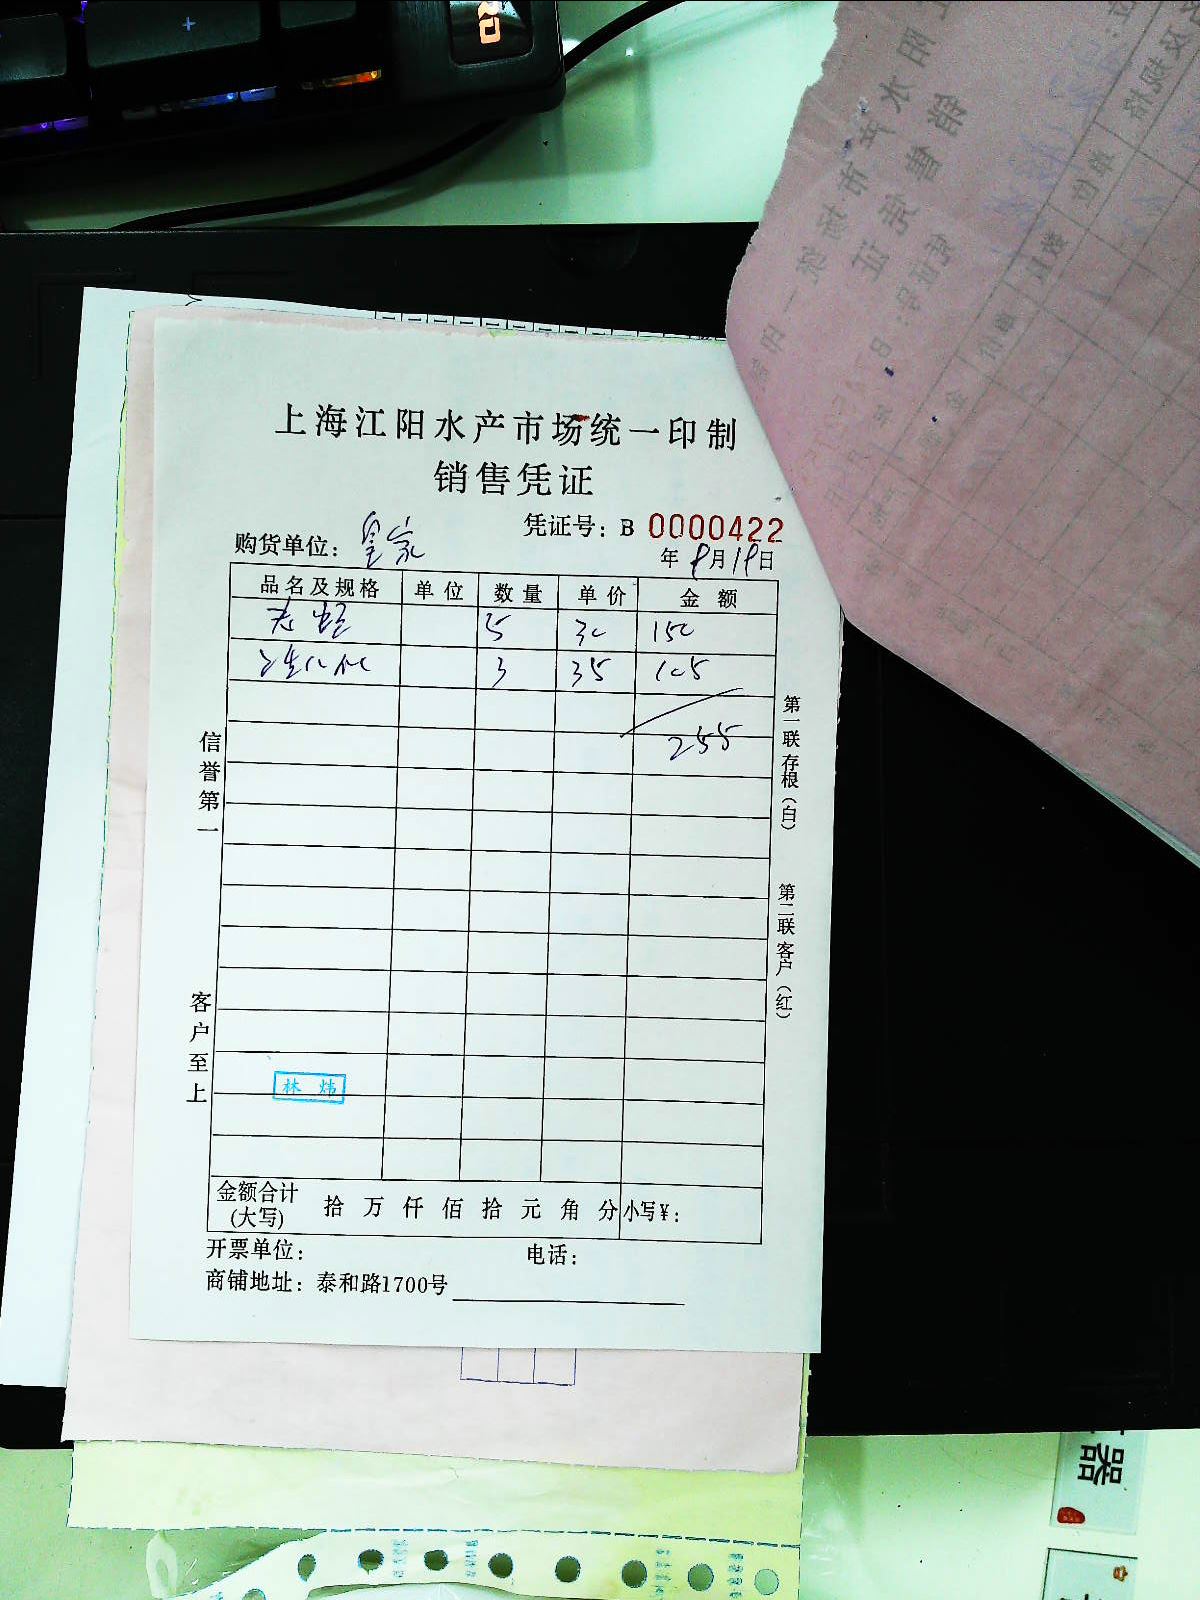 上海江阳水产市场统一印制
销售凭证
凭证号：B 0000422
购货单位：皇家
年 9月19日
品名及规格 单位 数量 单价 金额
5 30 150
3 35 105
255
信誉第一
客户至上
第一联存根（白）
第二联客户（红）
林炜
金额合计(大写) 拾 万 仟 佰 拾 元 角 分 小写¥：
开票单位： 电话：
商铺地址：泰和路1700号
器